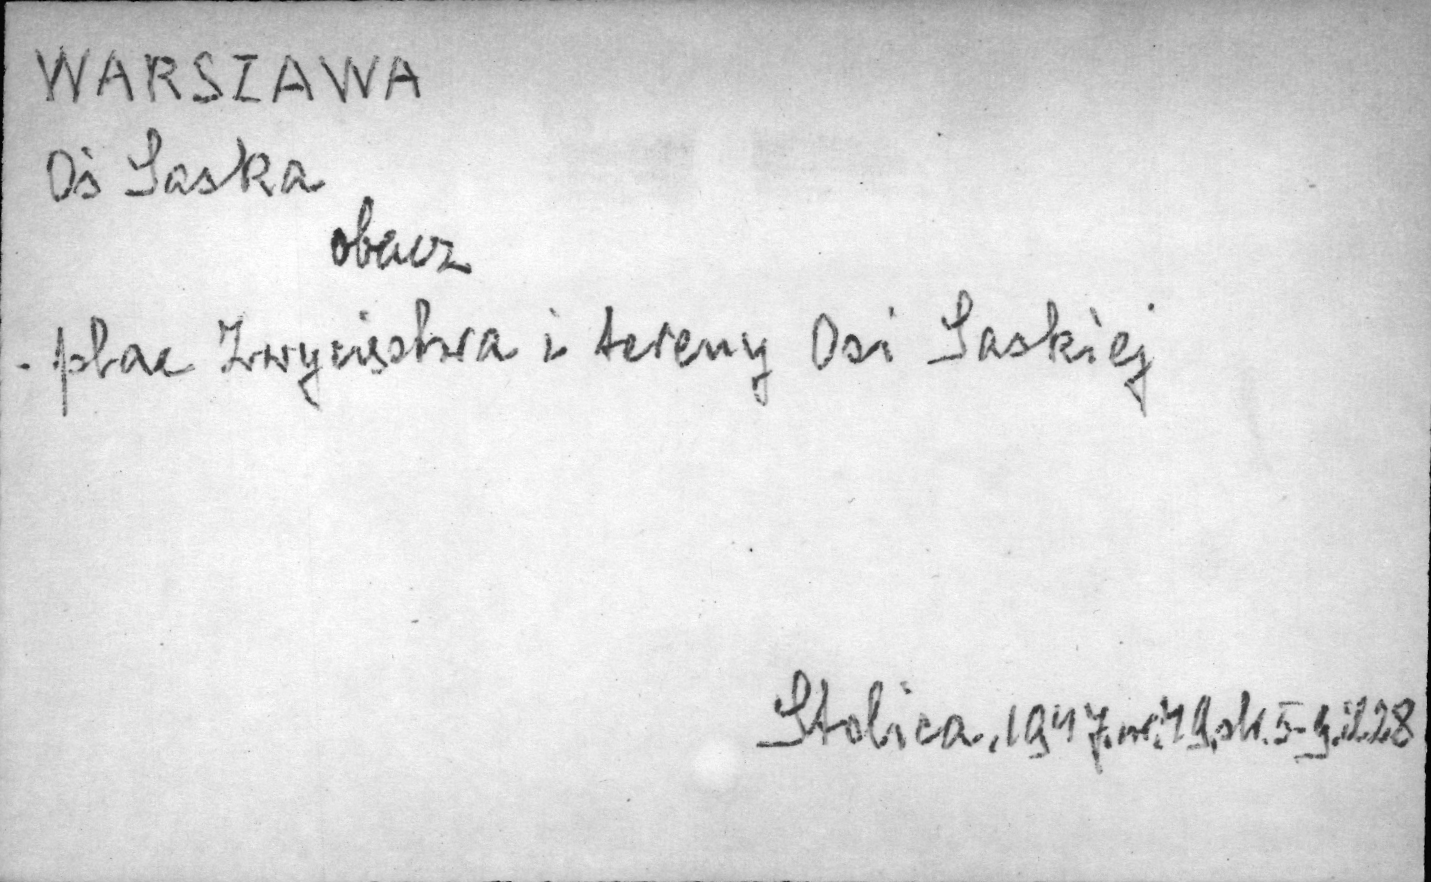 WARSZAWA
Oś Saska
obacz
- plac Zwycięstwa i tereny Osi Saskiej
Stolica, 1947, nr. 19, str. 5-9, il. 28